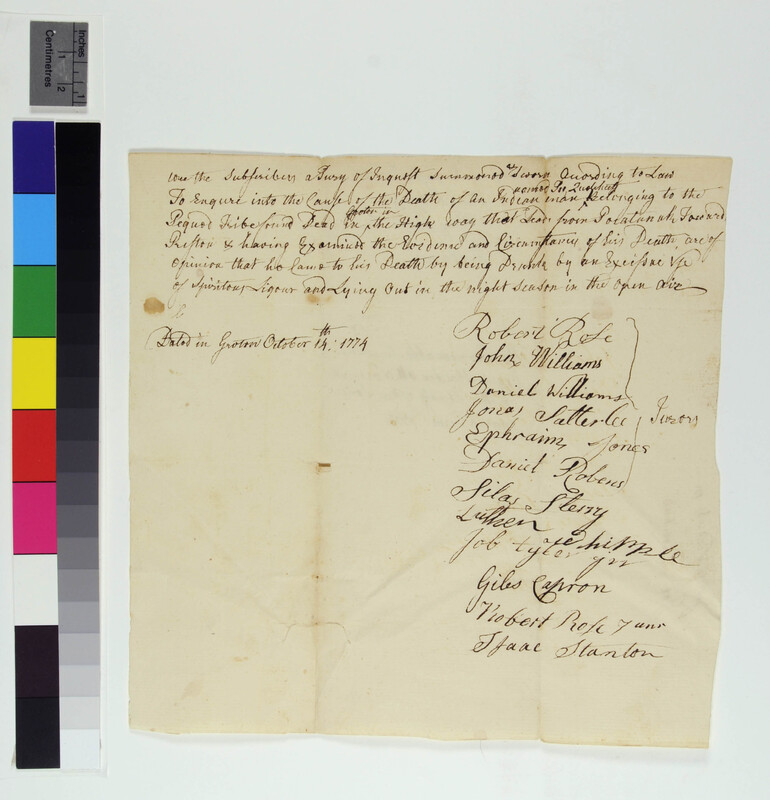 Inches
1
1
2
Centimetres
wee the Subscribers a Jury of Inquest Summoned & Sworn Acording to Law
To Enquire into the Cause of the Death of an Indian man named Belonging to the
Pequod tribe found Dead in Groton in the High way that Leads from Pocatanuk Toward
Preston & having Examined the Evidence and Circumstances of his Death are of
Opinion that he Came to his Death by being Drunk by an Excissive Use
of Spiritous Liquor and Lying Out in the night Season in the Open Air
Dated in Groton October 14th: 1774
Robert Rose
John Williams
Daniel Williams
Jonas Satterlee
Jurors
Ephraim Jones
Daniel Robens
Silas Sterry
Luther Whipple
Job Tyler Jnr
Giles Capron
Robert Rose Junr
Isaac Stanton